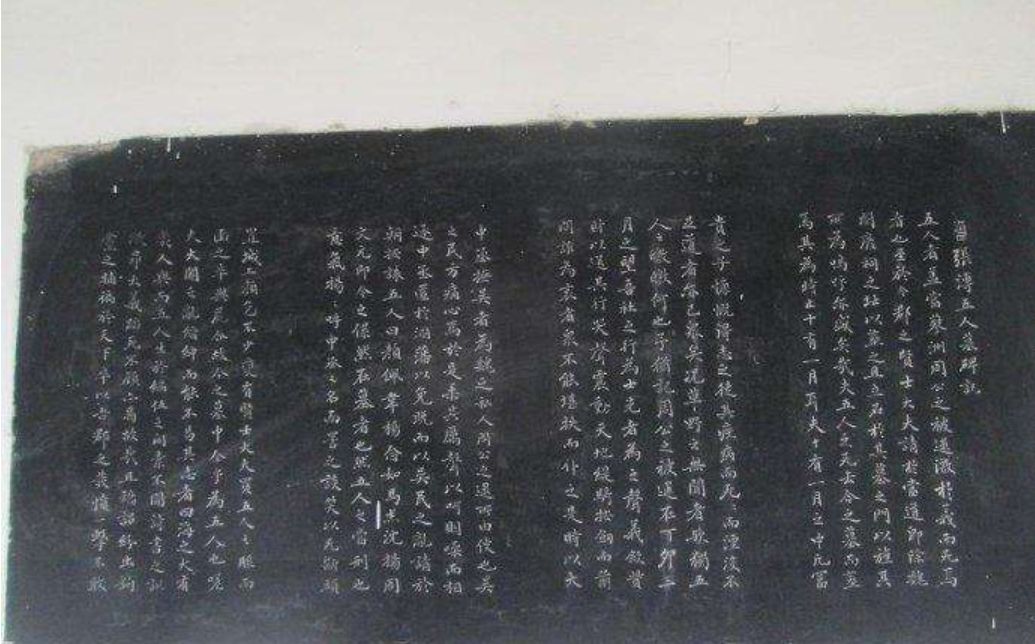 明張溥五人墓碑記
五人者蓋當蓼洲周公之被逮激於義而死焉
者也至於今郡之賢士大夫請於當道即除魏
閹廢祠之址以葬之且立石於其墓之門以旌其
所為嗚呼亦盛矣哉夫五人之死去今之墓而葬
焉其為時止十有一月耳夫十有一月之中凡富
貴之子慷慨得志之徒其疾病而死死而湮没不
足道者亦已衆矣況草野之無聞者歟獨五
人之皦皦何也予猶記周公之被逮在丁夘三
月之望吾社之行為士先者為之聲義斂貲
財以送其行哭聲震動天地緹騎按劍而前
問誰為哀者衆不能堪抶而仆之是時以大
中丞撫吳者為魏之私人周公之逮所由使也吳
之民方痛心焉於是乘其厲聲以呵則噪而相
逐中丞匿於溷藩以免既而以吳民之亂請於
朝按誅五人曰顏佩韋楊念如馬杰沈揚周
文元即今之傫然在墓者也然五人之當刑也
意氣揚揚呼中丞之名而詈之談笑以死斷頭
置城上顏色不少變有賢士大夫買五人之脰而
函之卒與屍合故今之墓中全乎為五人也嗟
夫大閹之亂縉紳而能不易其志者四海之大有
幾人歟而五人生於編伍之間素不聞詩書之訓
激昂大義蹈死不顧亦曷故哉且矯詔紛出鉤
黨之捕徧於天下卒以吾郡之發憤一擊不敢